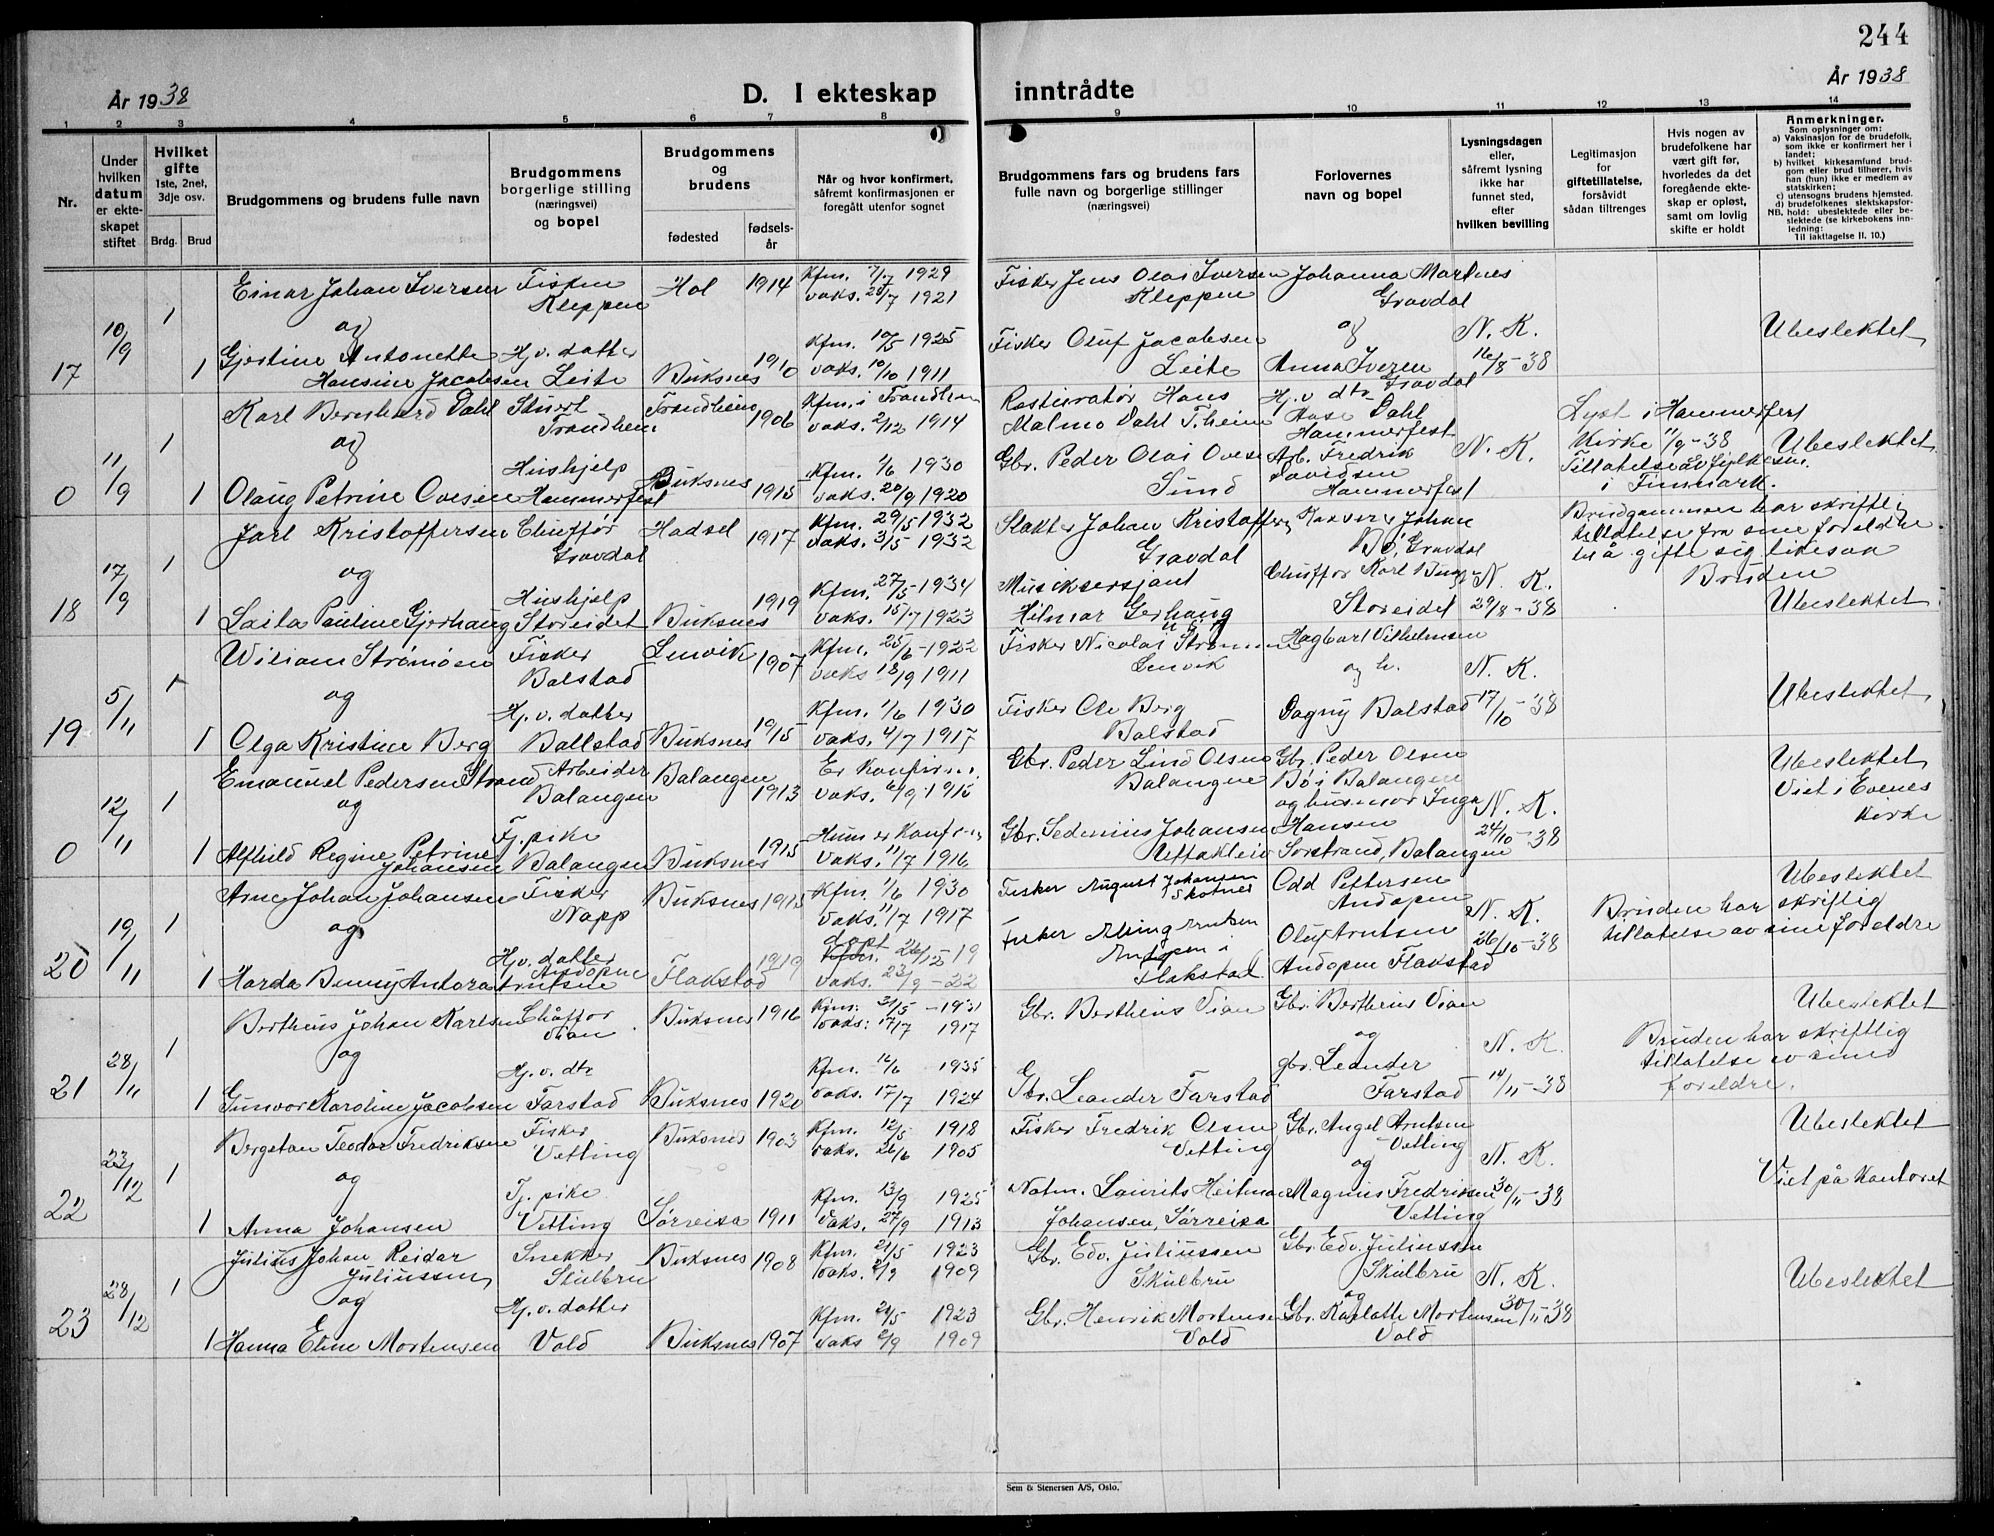 244
År 1938
D. I ekteskap
inntrådte
År 1938
1 2 3 4 5 6 7 8 9 10 11 12 13 14
Nr.
Under hvilken datum er ekte-skapet stiftet
Hvilket gifte 1ste, 2net, 3dje osv.
Brdg. Brud
Brudgommens og brudens fulle navn
Brudgommens borgerlige stilling (næringsvei) og bopel
Brudgommens og brudens
fødested
fødsels-år
Når og hvor konfirmert, såfremt konfirmasjonen er foregått utenfor sognet
Brudgommens fars og brudens fars fulle navn og borgerlige stillinger (næringsvei)
Forlovernes navn og bopel
Lysningsdagen eller, såfremt lysning ikke har funnet sted, efter hvilken bevilling
Legitimasjon for giftetillatelse, forsåvidt sådan tiltrenges
Hvis nogen av brudefolkene har vært gift før, hvorledes da det foregående ekte-skap er opløst, samt om lovlig skifte er holdt
Anmerkninger.
Som oplysninger om:
a) Vaksinasjon for de brudefolk, som ikke er konfirmert her i landet;
b) hvilket kirkesamfund brud-gom eller brud tilhører, hvis han (hun) ikke er medlem av statskirken;
c) utensogns brudens hjemsted.
d) brudefolkenes slektskapsfor-
NB. hold: ubeslektede eller be-slektede (se kirkebokens inn-ledning:
Til iakttagelse II. 10.)
17 10/9 1 Einar Johan Iversen Fisker Kleppen Hol 1914 Kfm. 1929 vaks. 20/7 1921 Fisker Jens Olai Iversen Kleppen Johanna Martnes Gravdal
og og N. K. Ubeslektet
1 Gjertine Antonette Hansine Jacobsen Hj. v. datter Leite Buksnes 1910 Kfm. 10/5 1925 vaks. 10/10 1911 Fisker Oluf Jacobsen Leite Anna Iversen Gravdal 16/8-38
0 11/9 1 Karl Bernhard Dahl Stuert Trondheim Trondheim 1906 Kfm. i Trondhem vaks. 2/12 1914 Restauratør Hans Malmo Dahl T.heim Hj. v dtr Aase Dahl Hammerfest N. K. Lyst i Hammerfest Kirke 11/9-38 Ubeslektet
og
1 Olaug Petrine Ovesen Hushjelp Hammerfest Buksnes 1915 Kfm. 1/6 1930 vaks. 20/9 1920 Gbr. Peder Olai Ovesen Sund Arb. Fredrik Davidsen Hammerfest Tillatelse av fylkesm. i Finnmark.
18 17/9 1 Jarl Kristoffersen Chuffør Gravdal Hadsel 1917 Kfm. 29/5 1932 vaks. 3/5 1932 Slakter Johan Kristoffers Gravdal Johan Bø, Gravdal Brudgommen har skriftlig tillatelse fra sine foreldre til å gifte sig likesaa Bruden
og N. K. Ubeslektet
1 Laila Pauline Gjerhaug Hushjelp Storeidet Buksnes 1919 Kfm. 27/5-1934 vaks. 15/7 1923 Musiksersjant Hilmar Gerhaug Chuffør Karl Storeidet 29/8-38
19 5/11 1 Wiliam Strømøen Fisker Balstad Lenvik 1907 Kfm. 25/6-1922 vaks 18/9 1911 Fisker Nicolai Strømøen Lenvik Hagbart Vilhelmsen og h. N. K. Ubeslektet
og
1 Olga Kristine Berg Hj. v. datter Ballstad Buksnes 1915 Kfm. 1/6 1930 vaks. 4/7 1917 Fisker Ole Berg Balstad Dagny Balstad 17/10-38
0 12/11 1 Emanuel Pedersen Strand Arbeider Balangen Balangen 1913 Er Konfirm. vaks. 6/9 1915 Gbr. Peder Lind Olsen Balangen Gbr. Peder Olsen Bø i Balangen og husmor Inga Hansen Sørstrand, Balangen N. K. 24/10-38 Ubeslektet Viet i Evenes Kirke
og
1 Alfhild Regine Petrine Johansen Tj. pike Balangen Buksnes 1915 Hun er Konfirm vaks. 11/7 1916 Gbr. Sedenius Johansen Uttakleiv
20 19/11 1 Arne Johan Johansen Fisker Napp Buksnes 1915 Kfm. 1/6 1930 vaks. 11/7 1917 Fisker August Johansen Skotnes Odd Pettersen Andopen N. K. Ubeslektet Bruden har skriftlig tillatelse av sine foreldre
og
1 Harda Benny Antora Arntsen Hj. v. datter Andopen Flakstad 1919 døpt 26/12-19 vaks. 23/9-22 Fisker Alsing Arntsen Andopen i Flakstad Oluf Arntsen Andopen Flakstad 26/10-38
21 28/11 1 Bertheus Johan Karlsen Chaffør Vian Buksnes 1916 Kfm: 31/5-1931 vaks: 17/7 1917 Gbr. Bertheus Vian Gbr. Bertheus Vian Ubeslektet
og og N. K. Bruden har skriftlig tillatelse av sine foreldre.
1 Gunvor Karoline Jacobsen Hj. v. dtr Farstad Buksnes 1920 Kfm. 16/6 1935 vaks. 17/7 1924 Gbr. Leander Farstad gbr. Leander Farstad 14/11-38
22 23/12 1 Bergeton Teodor Fredriksen Fisker Vetting Buksnes 1903 Kfm. 12/5 1918 vaks. 26/6 1905 Fisker Fredrik Olsen Vetting Gbr. Angel Arntsen Vetting Ubeslektet
og og N. K. Viet på Kontoret
1 Anna Johansen Tj. pike Vetting Sørreisa 1911 Kfm. 13/9 1925 vaks. 27/9 1913 Laurits Heitman Johansen, Sørreisa Magnus Fredriksen Vetting 30/11-38
23 28/12 1 Julius Johan Reidar Juliussen Snekker Skulbru Buksnes 1908 Kfm. 21/5 1923 vaks. 2/9 1909 Gbr. Edv. Juliussen Skulbru Gbr. Edv. Juliussen Skulbru N. K. Ubeslektet
og og
1 Hanna Eline Mortensen Hj. v. datter Vold Buksnes 1907 Kfm. 21/5 1923 vaks 2/9 1909 Gbr. Henrik Mortensen Vold Gbr. Mortensen Vold 30/11-38
Sem & Stenersen A/S, Oslo.